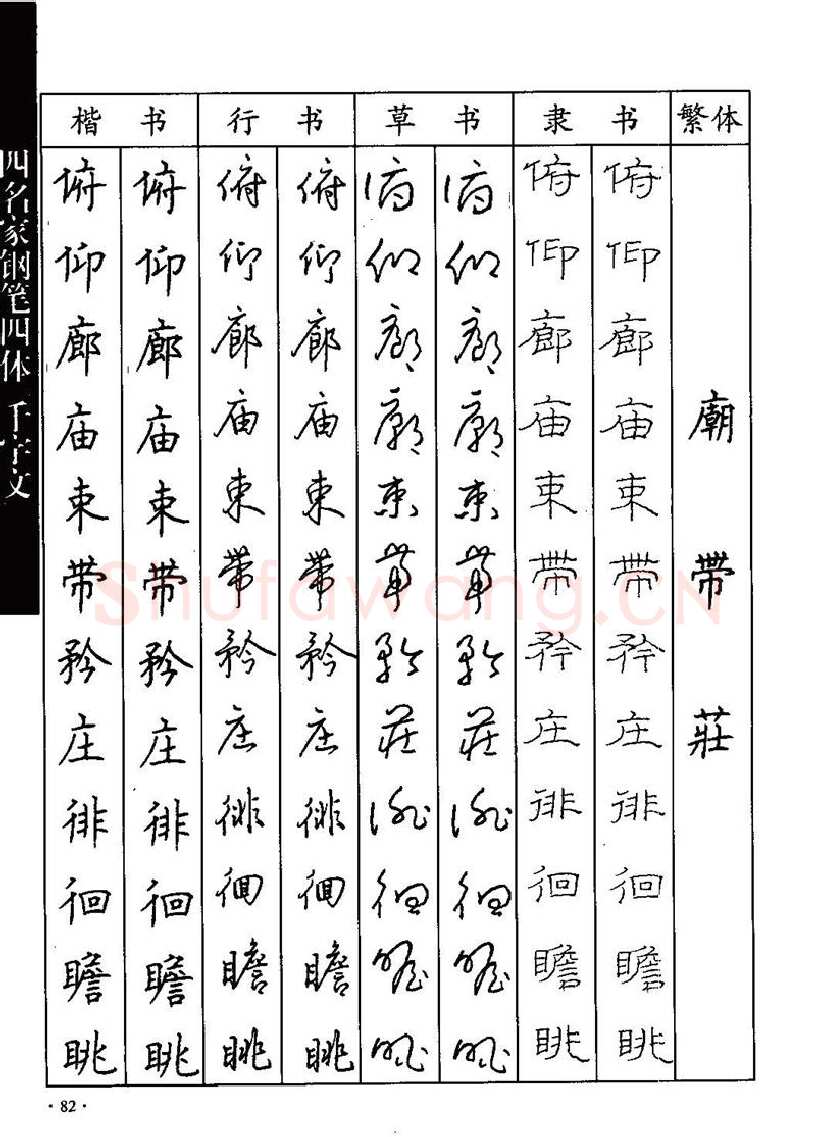 四名家钢笔四体千字文
楷书 行书 草书 隶书 繁体
俯 俯 俯 俯 俯 俯 俯 俯
仰 仰 仰 仰 仰 仰 仰 仰
廊 廊 廊 廊 廊 廊 廊 廊
庙 庙 庙 庙 廟 廟 庙 庙 廟
束 束 束 束 束 束 束 束
带 带 带 带 带 带 带 带 帶
矜 矜 矜 矜 矜 矜 矜 矜
庄 庄 庄 庄 莊 莊 庄 庄 莊
徘 徘 徘 徘 徘 徘 徘 徘
徊 徊 徊 徊 徊 徊 徊 徊
瞻 瞻 瞻 瞻 瞻 瞻 瞻 瞻
眺 眺 眺 眺 眺 眺 眺 眺
Shufawang.CN
·82·